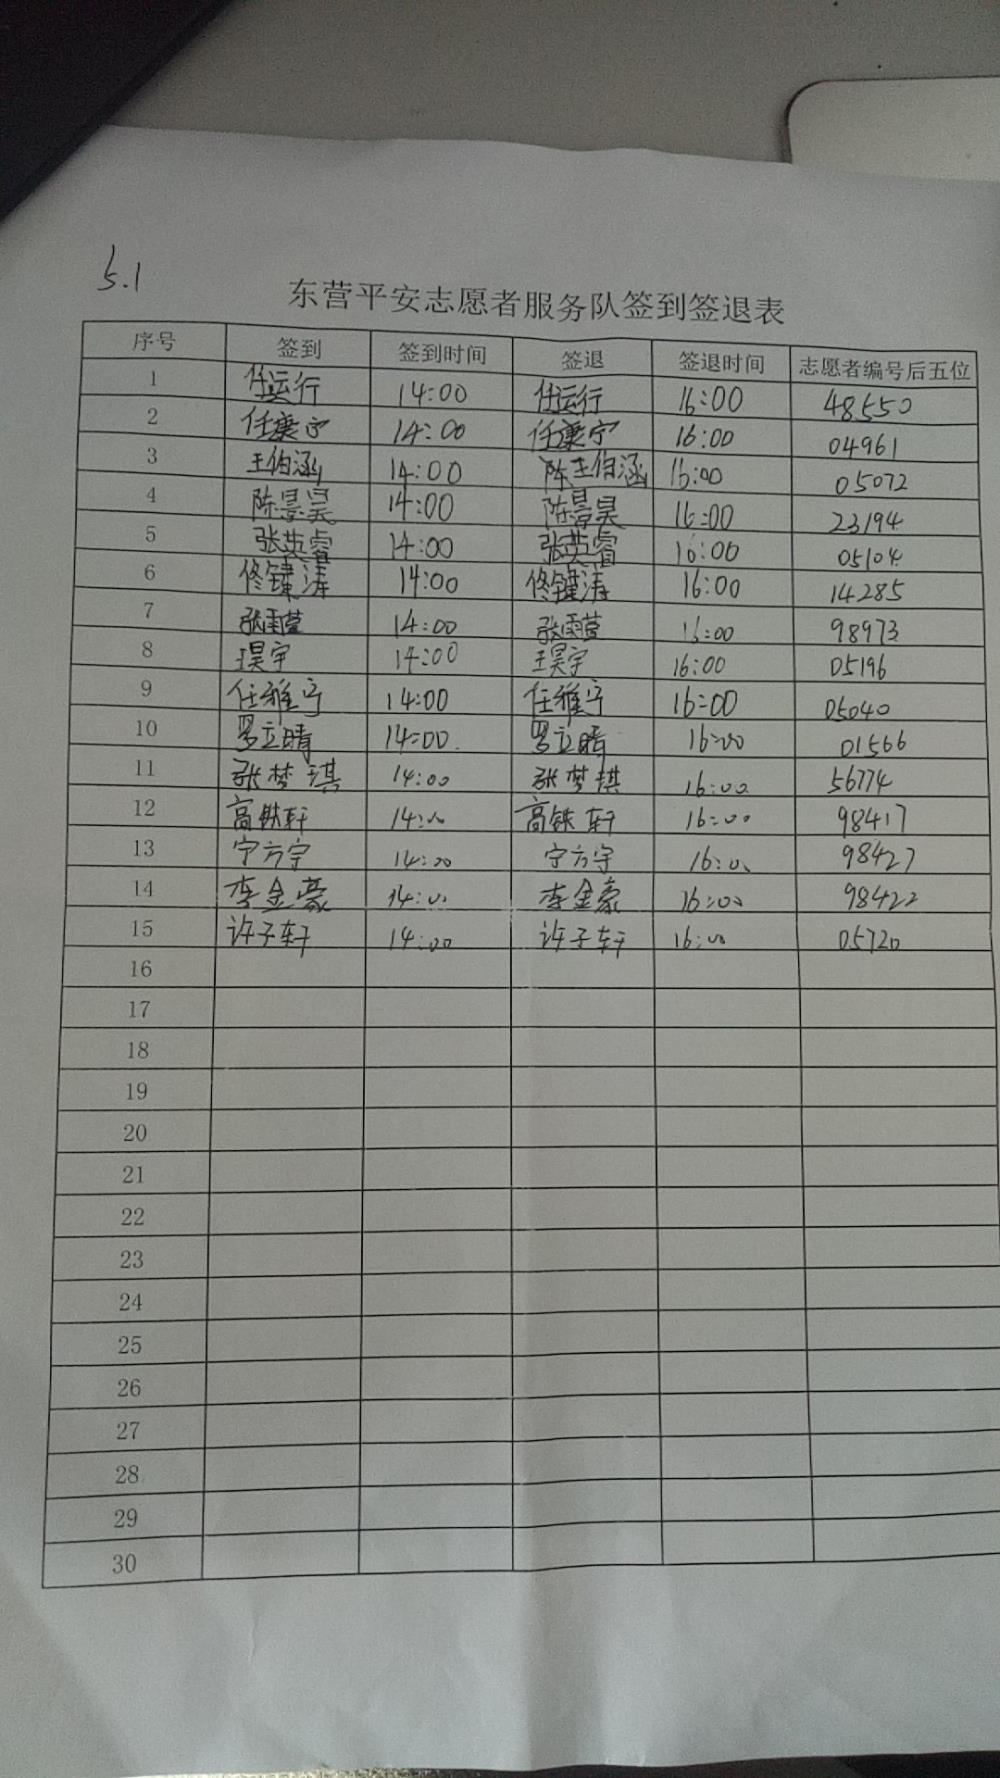 5.1
东营平安志愿者服务队签到签退表
序号 签到 签到时间 签退 签退时间 志愿者编号后五位
1 任运行 14:00 任运行 16:00 48550
2 任康宁 14:00 任康宁 16:00 04961
3 王伯涵 14:00 陈王伯涵 16:00 05072
4 陈景昊 14:00 陈景昊 16:00 23194
5 张英睿 14:00 张英睿 16:00 05104
6 佟键涛 14:00 佟键涛 16:00 14285
7 张雨萱 14:00 张雨萱 16:00 98973
8 王昊宇 14:00 王昊宇 16:00 05196
9 任雅宁 14:00 任雅宁 16:00 05040
10 罗立晴 14:00 罗立晴 16:00 01566
11 张梦琪 14:00 张梦琪 16:00 56774
12 高铁轩 14:00 高铁轩 16:00 98417
13 宁方宇 14:00 宁方宇 16:00 98427
14 李金豪 14:00 李金豪 16:00 98422
15 许子轩 14:00 许子轩 16:00 05720
16
17
18
19
20
21
22
23
24
25
26
27
28
29
30